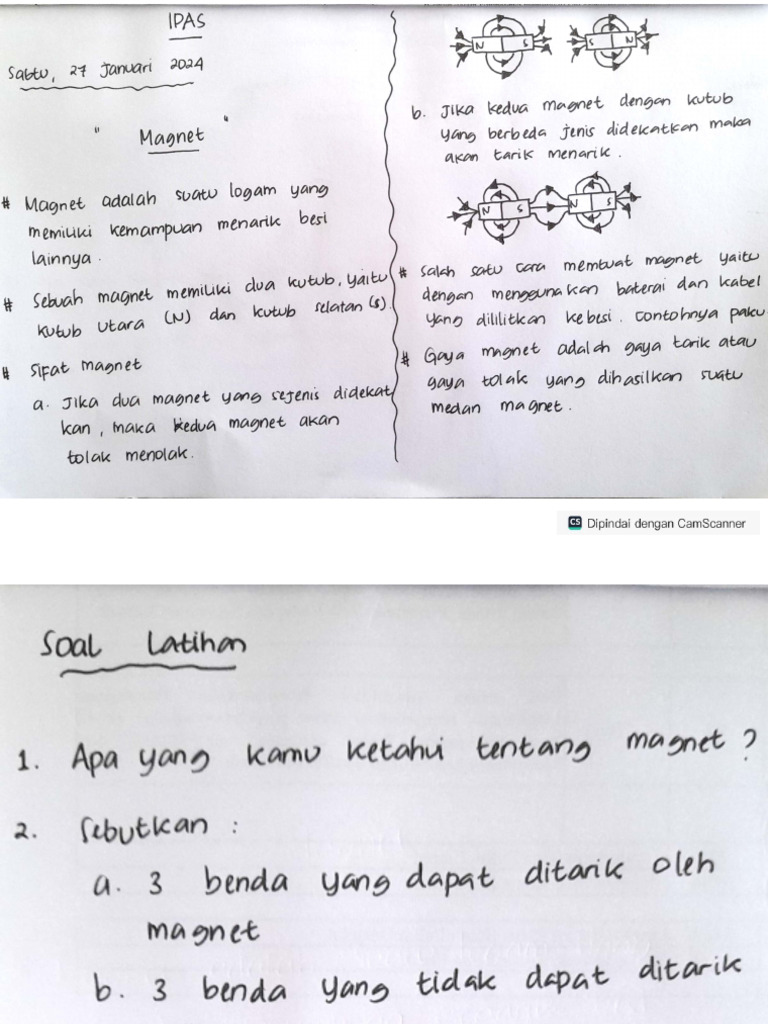 IPAS
Sabtu, 27 Januari 2024
" Magnet "
# Magnet adalah suatu logam yang
memiliki kemampuan menarik besi
lainnya.
# Sebuah magnet memiliki dua kutub, yaitu
kutub utara (N) dan kutub selatan (S).
# Sifat magnet
a. Jika dua magnet yang sejenis didekat
kan, maka kedua magnet akan
tolak menolak.
N S S N
b. Jika kedua magnet dengan kutub
yang berbeda jenis didekatkan maka
akan tarik menarik.
N S N S
# Salah satu cara membuat magnet yaitu
dengan menggunakan baterai dan kabel
yang dililitkan kebesi. Contohnya paku
# Gaya magnet adalah gaya tarik atau
gaya tolak yang dihasilkan suatu
medan magnet.
CS Dipindai dengan CamScanner
Soal Latihan
1. Apa yang kamu ketahui tentang magnet?
2. Sebutkan :
a. 3 benda yang dapat ditarik oleh
magnet
b. 3 benda yang tidak dapat ditarik